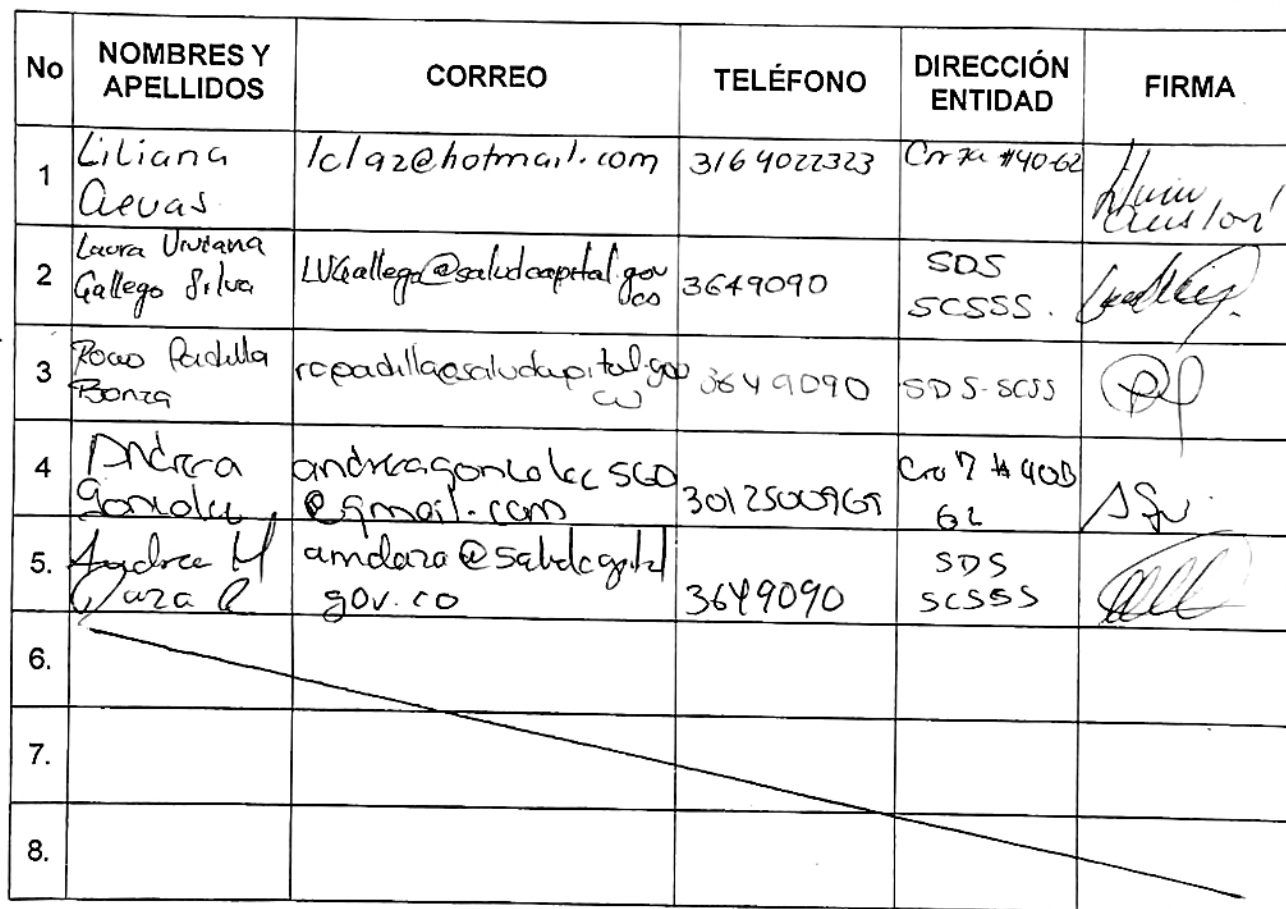 No
NOMBRES Y
APELLIDOS
CORREO
TELÉFONO
DIRECCIÓN
ENTIDAD
FIRMA
1
Liliana
lclaz@hotmail.com
3164022323
#40-62
2
Laura Viviana
Gallego Silva
LVGallego@saludcapital.gov
co
3649090
SDS
SCSSS.
3
Rocio Padilla
Bonza
rcpadilla@saludcapital.gov
co
3649090
SDS-SCSS
4
Andrea
Gonzalez
@gmail.com
Cra 7 # 40B
62
5.
Andrea M
Daza R
amdaza@saludcapital
gov.co
3649090
SDS
SCSSS
6.
7.
8.